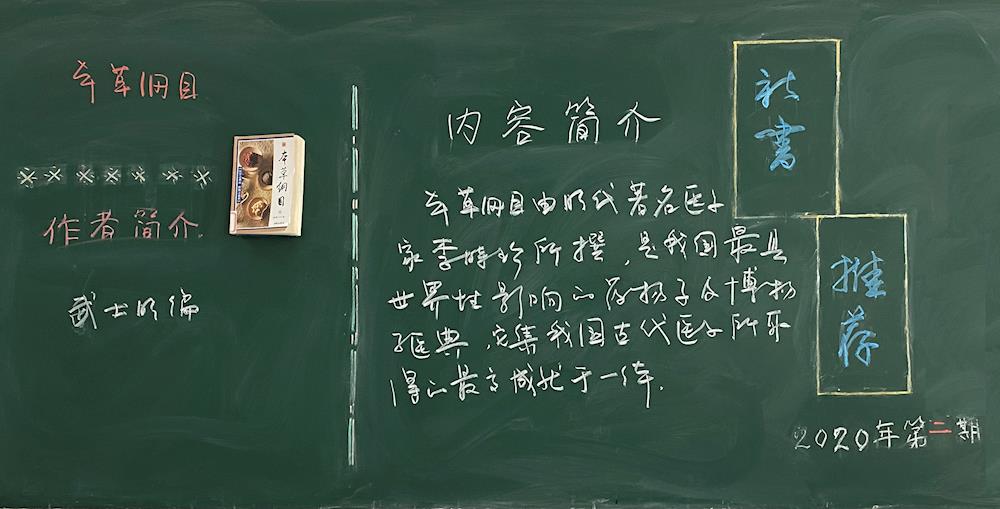 本草纲目
*******
作者简介.
武士明编
本草綱目
内容简介
本草纲目由明代著名医学
家李时珍所撰,是我国最具
世界性影响的药物学及博物
学医典,它集我国古代医学所取
得的最高成就于一体.
新書
推荐
2020年第二期